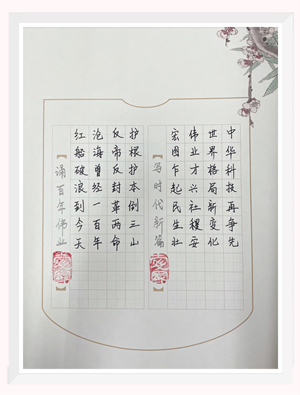 【诵百年伟业】
红船破浪到今天
沧海曾经一百年
反帝反封革两命
护根护本倒三山
【写时代新篇】
宏图乍起民生壮
伟业才兴社稷安
世界格局新变化
中华科技再争先